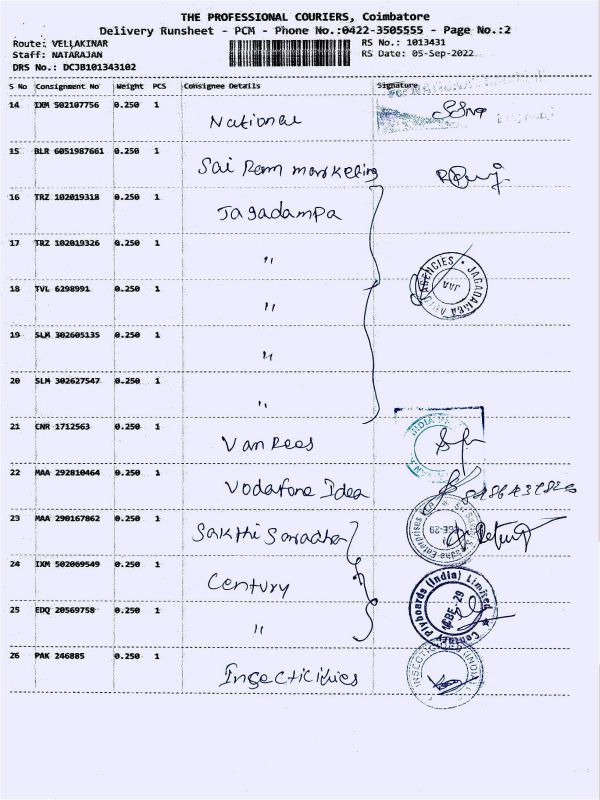 THE PROFESSIONAL COURIERS, Coimbatore
Delivery Runsheet - PCM - Phone No.:0422-3505555 - Page No.:2
Route: VELLAKINAR RS No.: 1013431
Staff: NATARAJAN RS Date: 05-Sep-2022
DRS No.: DCJB101343102
S No Consignment No Weight PCS Consignee Details Signature
14 IXM 502107756 0.250 1 National
15 BLR 6051987661 0.250 1 Sai Ram marketing
16 TRZ 102019318 0.250 1 Jagadampa
17 TRZ 102019326 0.250 1 "
18 TVL 6298991 0.250 1 "
JAGADAMBA AGENCIES
JAA
19 SLM 302605135 0.250 1 "
20 SLM 302627547 0.250 1 "
21 CNR 1712563 0.250 1 Van Rees
INDIA
22 MAA 292810464 0.250 1 Vodafone Idea
23 MAA 290167862 0.250 1 Sakthi Saradha
Enterprises
CBE-29
24 IXM 502069549 0.250 1 Century
25 EDQ 20569758 0.250 1 "
Century Plyboards (India) Limited
CBE - 29
26 PAK 246885 0.250 1 Insecticities